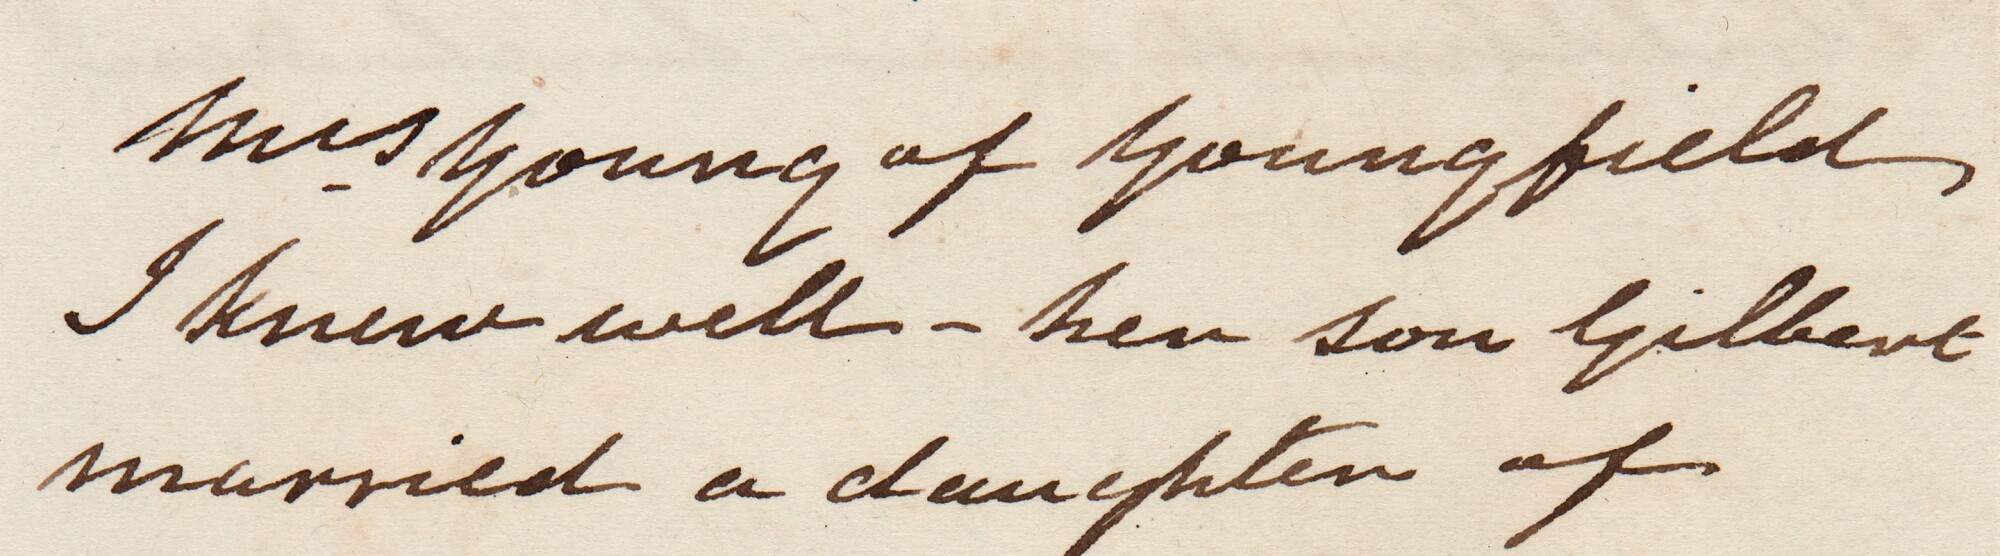 Mrs Young of Youngfield
I knew well - her son Gilbert
married a daughter of